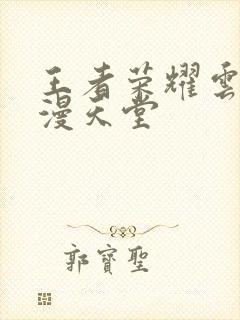 王者荣耀雲
漫天堂
郭寶聖